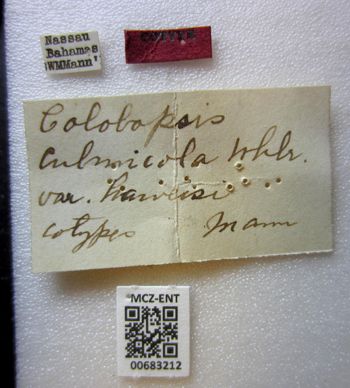 Nassau
Bahamas
WMMann'
COTYPE
Colobopsis
Culmicola Whlr.
var. haweisi
cotypes Mann
MCZ-ENT
00683212